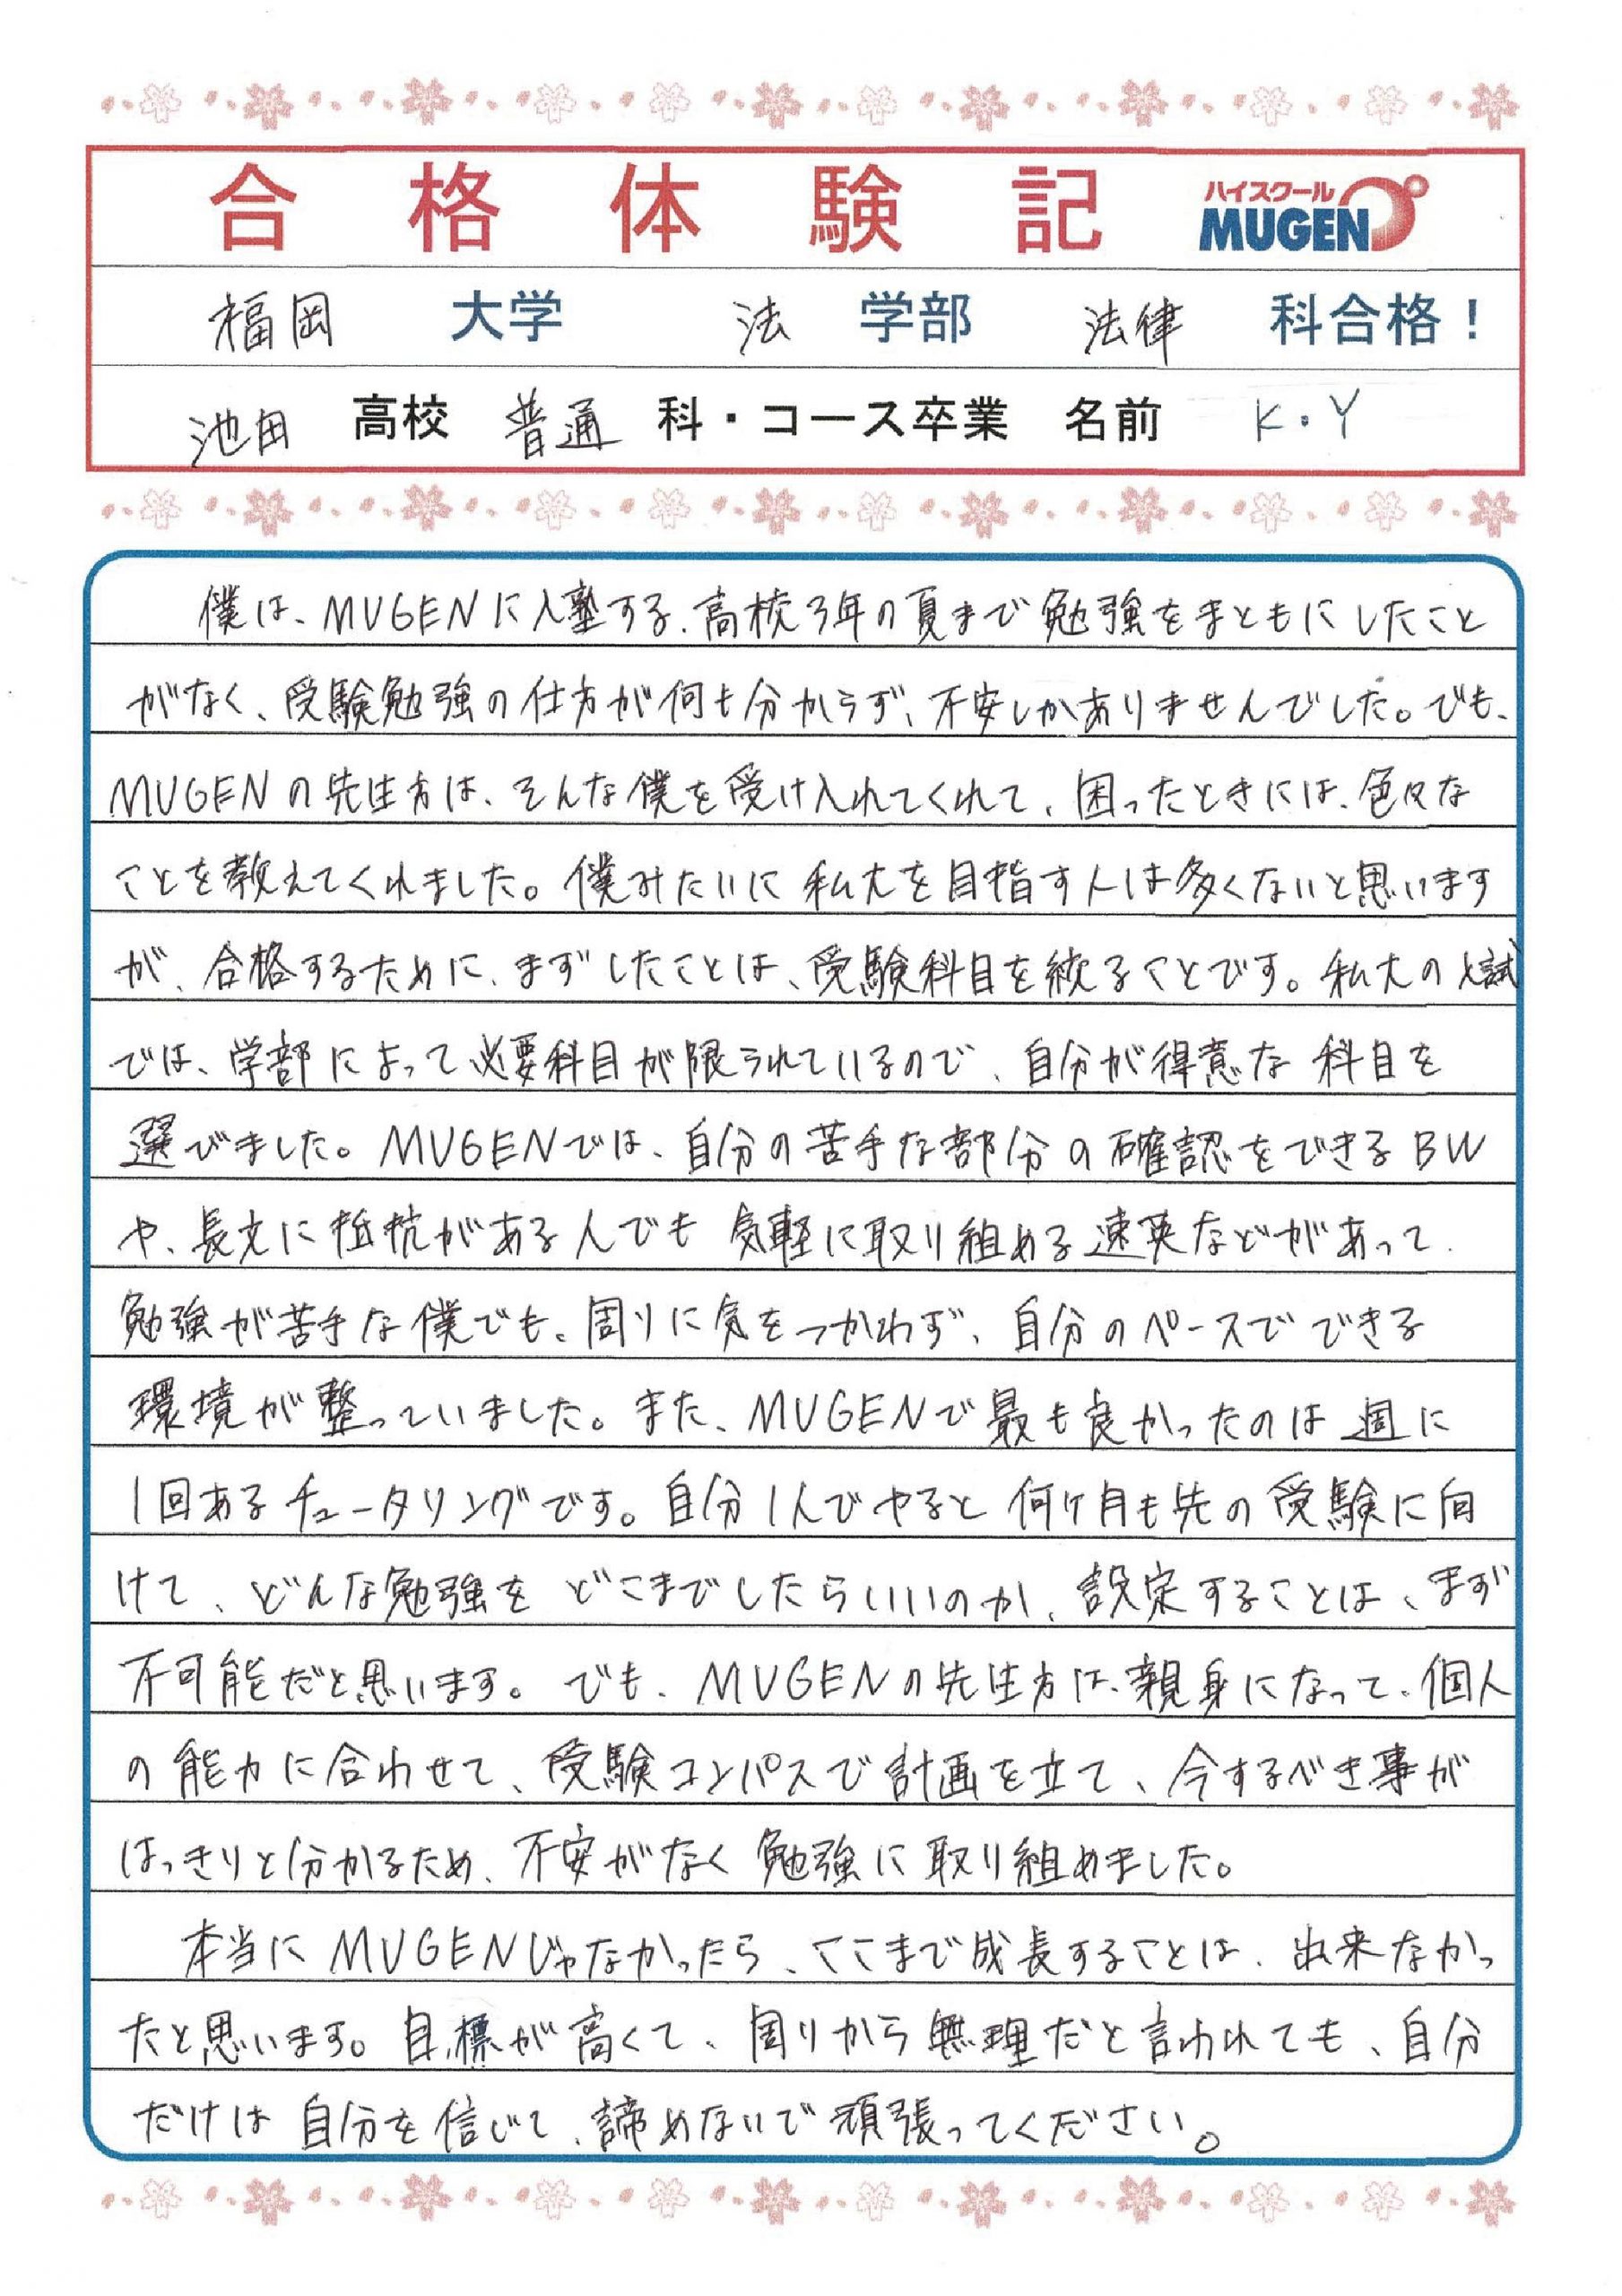 合格体験記 ハイスクール MUGEN
福岡 大学 法 学部 法律 科合格！
池田 高校 普通 科・コース卒業 名前 K・Y
僕は、MUGENに入塾する、高校3年の夏まで勉強をまともにしたこと
がなく、受験勉強の仕方が何も分からず、不安しかありませんでした。でも、
MUGENの先生方は、そんな僕を受け入れてくれて、困ったときには、色々な
ことを教えてくれました。僕みたいに私大を目指す人は多くないと思います
が、合格するために、まずしたことは、受験科目を絞ることです。私大の入試
では、学部によって必要科目が限られているので、自分が得意な科目を
選びました。MUGENでは、自分の苦手な部分の確認をできるBW
や、長文に抵抗がある人でも気軽に取り組める速英などがあって、
勉強が苦手な僕でも、周りに気をつかわず、自分のペースでできる
環境が整っていました。また、MUGENで最も良かったのは週に
1回あるチュータリングです。自分1人でやると何ヶ月も先の受験に向
けて、どんな勉強をどこまでしたらいいのか、設定することは、まず
不可能だと思います。でも、MUGENの先生方は、親身になって、個人
の能力に合わせて、受験コンパスで計画を立て、今するべき事が
はっきりと分かるため、不安がなく勉強に取り組めました。
本当にMUGENじゃなかったら、ここまで成長することは、出来なかっ
たと思います。目標が高くて、周りから無理だと言われても、自分
だけは自分を信じて、諦めないで頑張ってください。